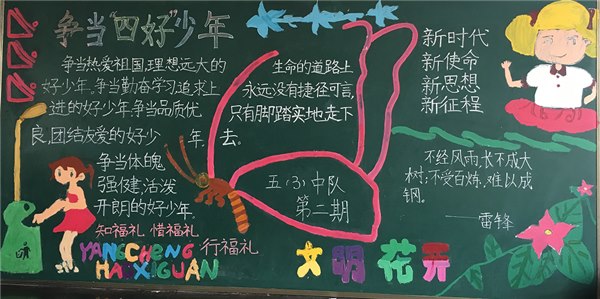 争当"四好"少年
争当热爱祖国,理想远大的
好少年,争当勤奋学习,追求上
进的好少年,争当品质优
良,团结友爱的好少年,
争当体魄
强健,活泼
开朗的好少年.
知福礼 惜福礼
行福礼
YANGCHENG
HAOXIGUAN
生命的道路上
永远没有捷径可言
只有脚踏实地走下
去。
五(3)中队
第二期
文明花开
新时代
新使命
新思想
新征程
不经风雨,长不成大
树;不受百炼,难以成
钢。
——雷锋